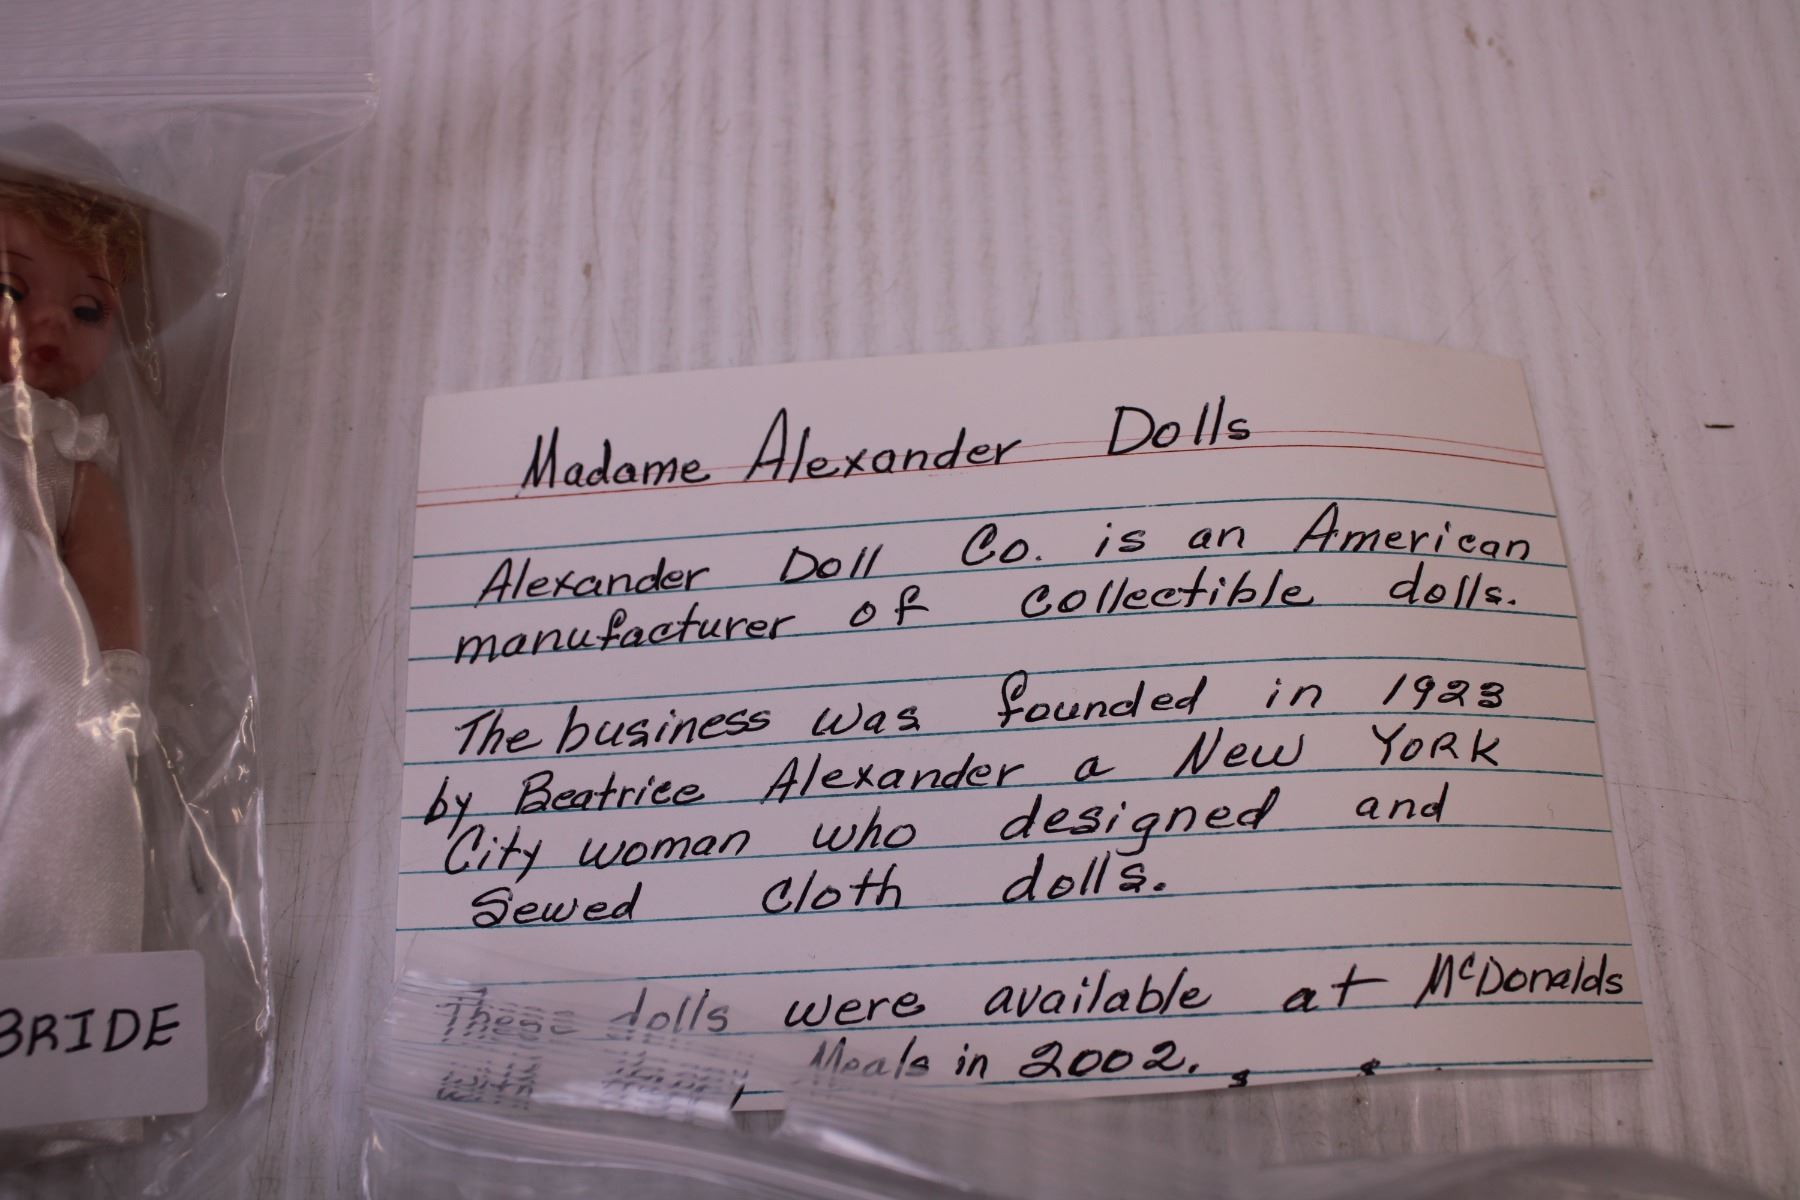 Madame Alexander Dolls
Alexander Doll Co. is an American
manufacturer of collectible dolls.
The business was founded in 1923
by Beatrice Alexander a New York
City woman who designed and
sewed cloth dolls.
dolls were available at McDonalds
Meals in 2002.
BRIDE